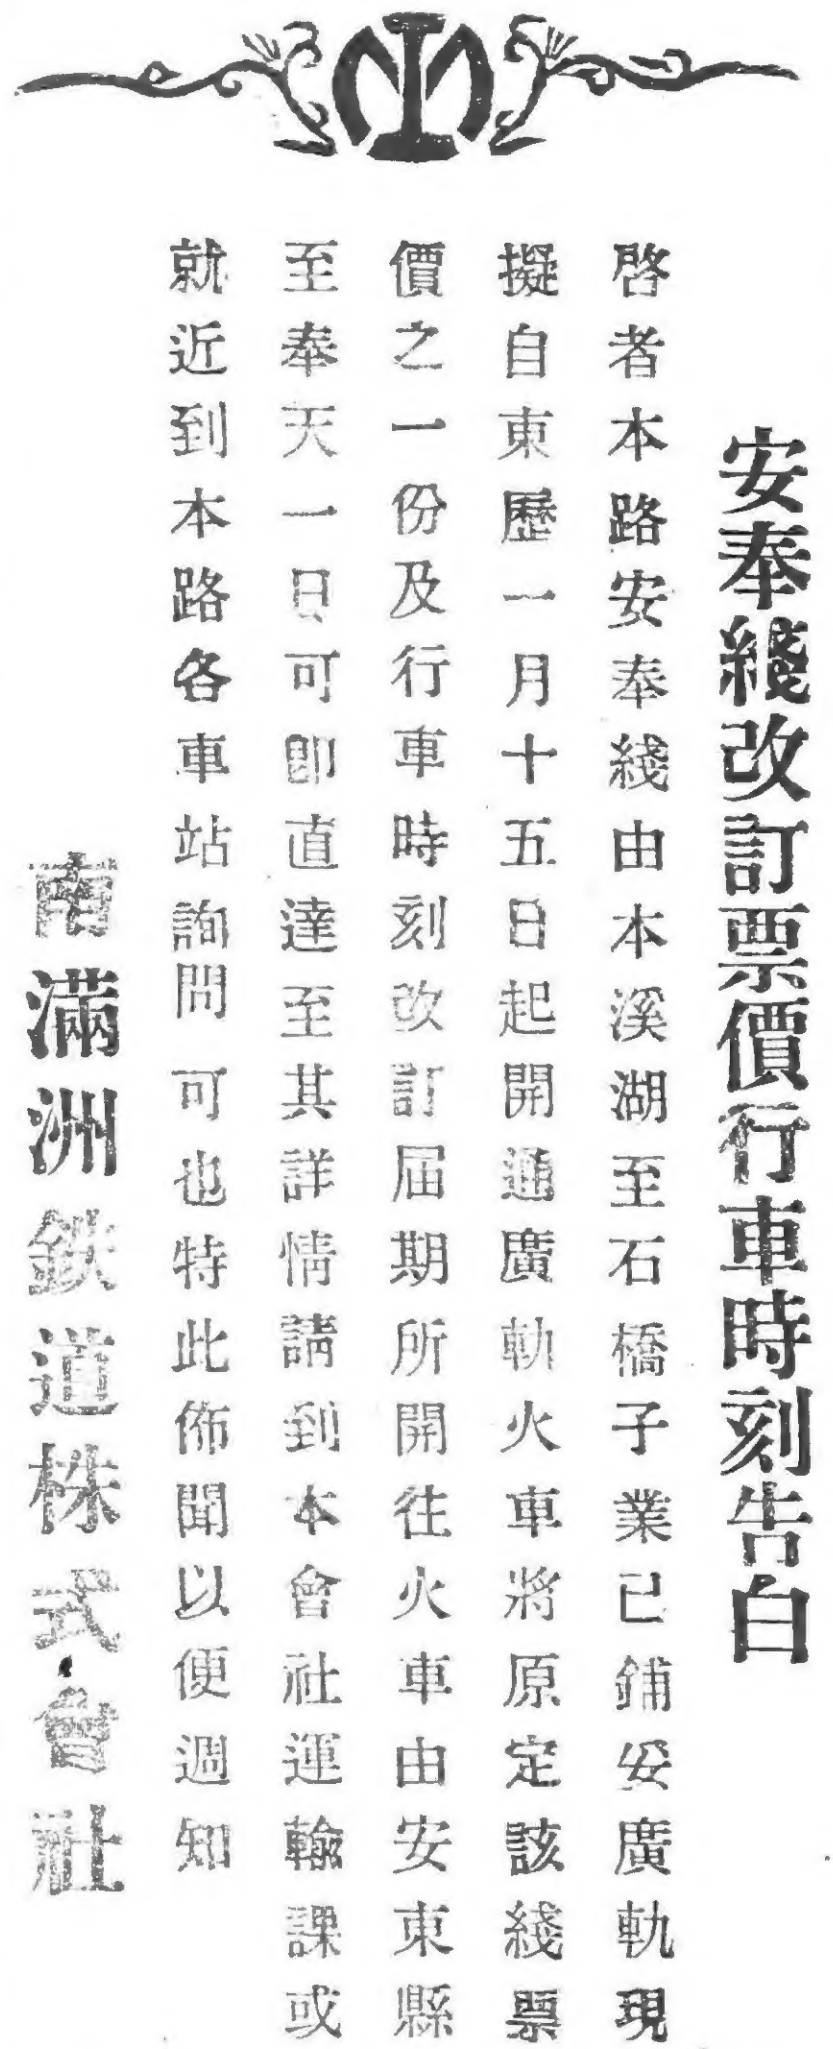 安奉綫改訂票價行車時刻告白
啓者本路安奉綫由本溪湖至石橋子業已鋪妥廣軌現
擬自東歷一月十五日起開通廣軌火車將原定該綫票
價之一份及行車時刻改訂届期所開往火車由安東縣
至奉天一日可卽直達至其詳情請到本會社運輸課或
就近到本路各車站詢問可也特此佈聞以便週知
南滿洲鉄道株式會社